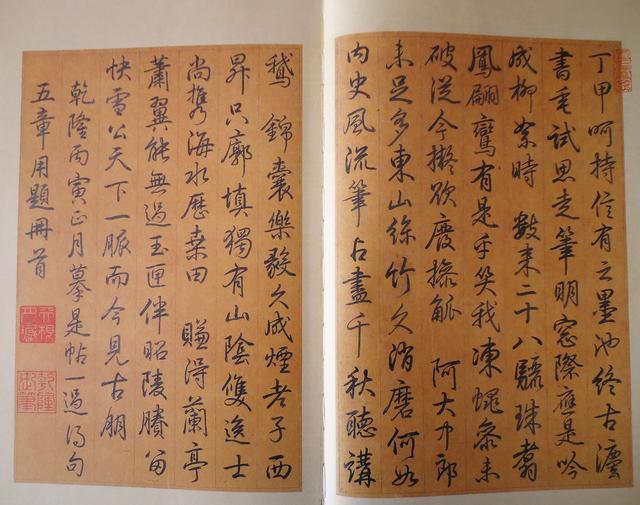 丁甲呵持信有之墨池終古灋
書垂試思走筆明窗際應是吟
成柳絮時 數来二十八驪珠翥
鳳翩鸞有是乎笑我凍蠅參未
破從今擬欲廢操觚 阿大中郎
未足多東山絲竹久消磨何如
内史風流筆占盡千秋聽講
鵝 錦囊樂毅久成煙老子西
昇只廓填獨有山陰雙逸士
尚攜海水歷桑田 賺得蘭亭
蕭翼能無過玉匣伴昭陵賸留
快雪公天下一脈而今見古朋
乾隆丙寅正月摹是帖一過得句
五章用題冊首
乾隆